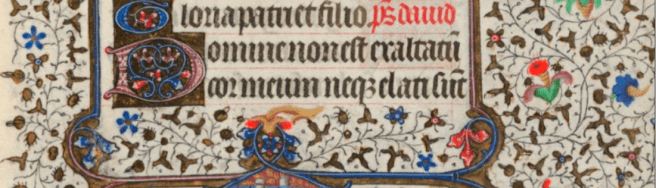 Gloria patri et filio. ps̄ dauid
Domine non est exaltatū
cor meum neq; elati sūt